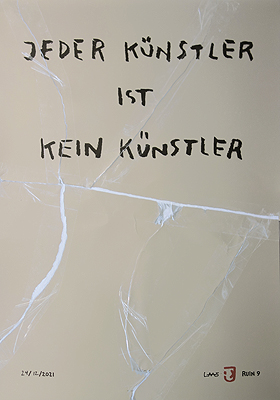 JEDER KÜNSTLER
IST
KEIN KÜNSTLER
24/12/2021
RUIN 9